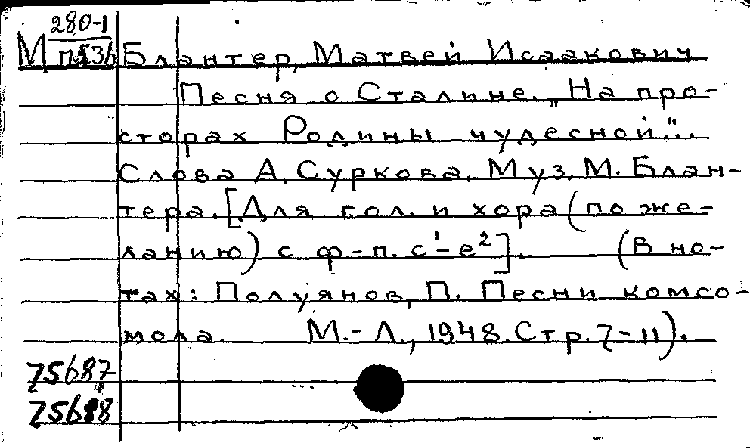 280-1
М п536 Блантер, Матвей Исаакович
Песня о Сталине. „На про-
сторах Родины чудесной"..
Слова А. Суркова. Муз. М. Блан-
тера. [Для гол. и хора (по же-
ланию) с ф-п. c¹-e²]. (В но-
тах: Полуянов, П. Песни комсо-
мола. М.-Л., 1948. Стр. 7-11).
75687
75688